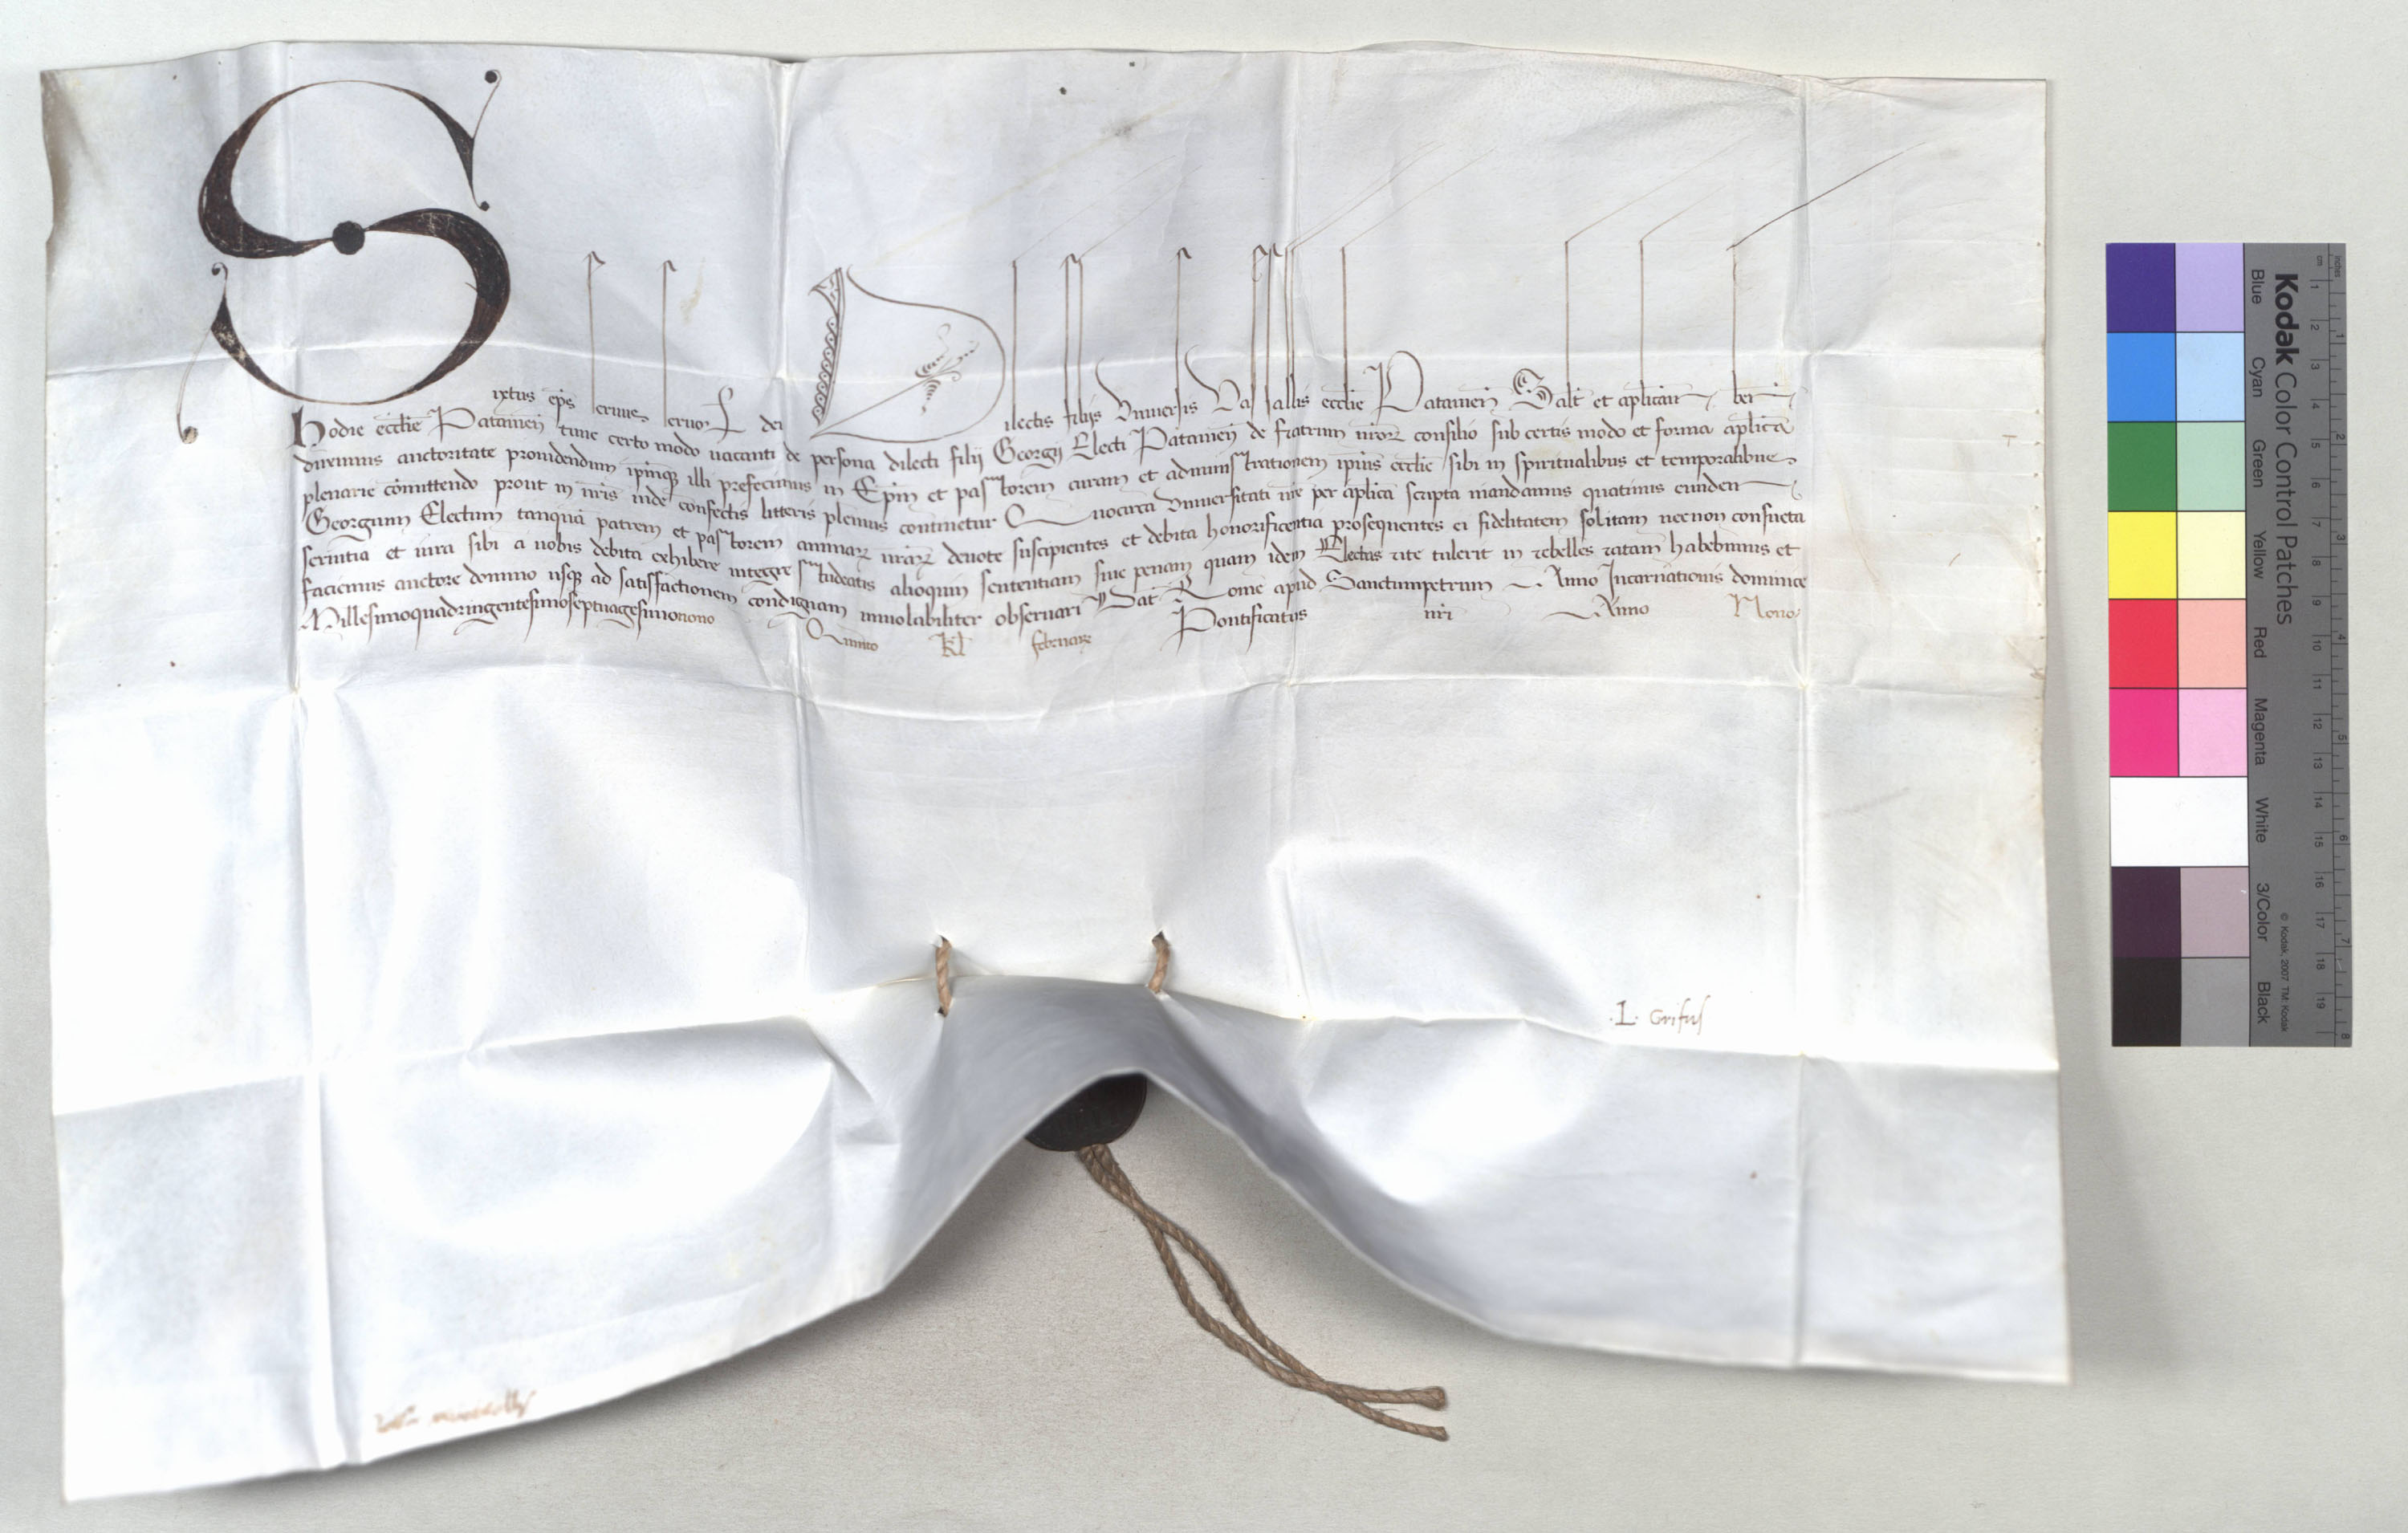 Sixtus ep̄s seruus seruoꝝ dei Dilectis filijs Vniuersis Vasallis eccl̄ie Patauieñ Salt̄ et ap̄licaꝫ ben̄
Hodie eccl̄ie Patauieñ tunc certo modo uacanti de persona dilecti filij Georgij Electi Patauieñ de fratrum nr̄oꝝ consilio sub certis modo et forma ap̄lica
duximus auctoritate prouidendum ip̄mqꝫ illi prefecimus in Ep̄m et pastorem curam et administrationem ip̄ius eccl̄ie sibi in spiritualibus et temporalibus
plenarie cōmittendo prout in nr̄is inde confectis litteris plenius continetur Quocirca Vniuersitati ur̄e per ap̄lica scripta mandamus quatinus eundem
Georgium Electum tanquā patrem et pastorem animaꝝ ur̄aꝝ deuote suscipientes et debita honorificentia prosequentes ei fidelitatem solitam necnon consueta
seruitia et iura sibi a uobis debita exhibere integre studeatis alioquin sententiam siue penam quam idem Electus rite tulerit in rebelles ratam habebimus et
faciemus auctore domino usqꝫ ad satisfactionem condignam inuiolabiliter obseruari Dat̄ Rome apud Sanctumpetrum Anno Incarnationis dominice
Millesimoquadringentesimoseptuagesimonono Quinto Kl̄ februarꝝ Pontificatus nr̄i Anno Nono
.L. Grifus
Kodak Color Control Patches
Blue Cyan Green Yellow Red Magenta White 3/Color Black
© Kodak, 2007 TM: Kodak
cm 1 2 3 4 5 6 7 8 9 10 11 12 13 14 15 16 17 18 19
inches 1 2 3 4 5 6 7 8